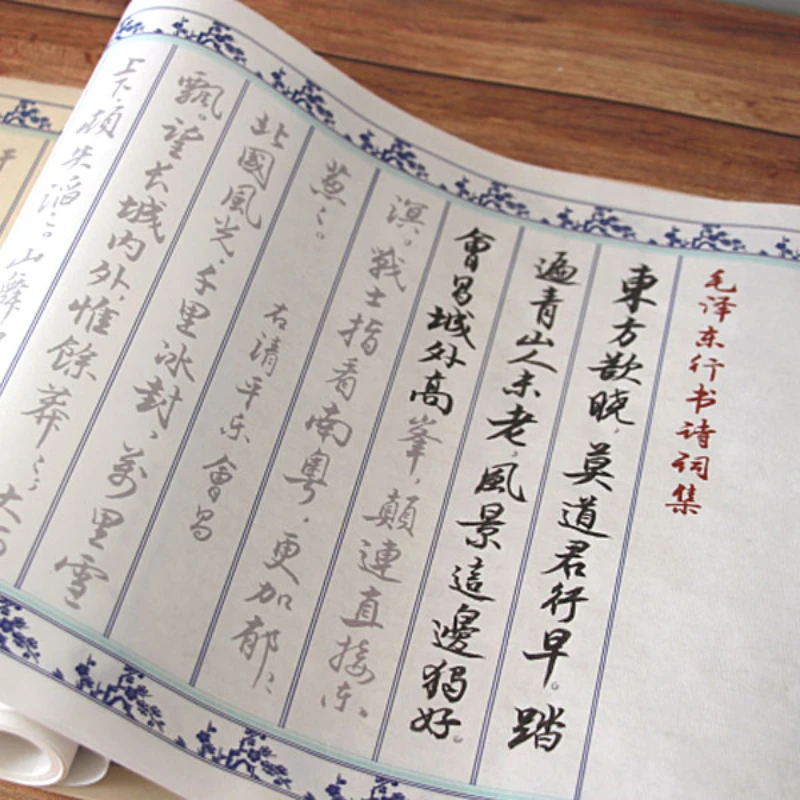 毛泽东行书诗词集
東方欲曉，莫道君行早。踏
遍青山人未老，風景這邊獨好。
會昌城外高峯，顛連直接东
溟。戰士指看南粵，更加郁々
葱々。 右清平乐 會昌
北國風光，千里冰封，萬里雪
飄。望长城内外，惟餘莽々；大河
上下，頓失滔々。山舞